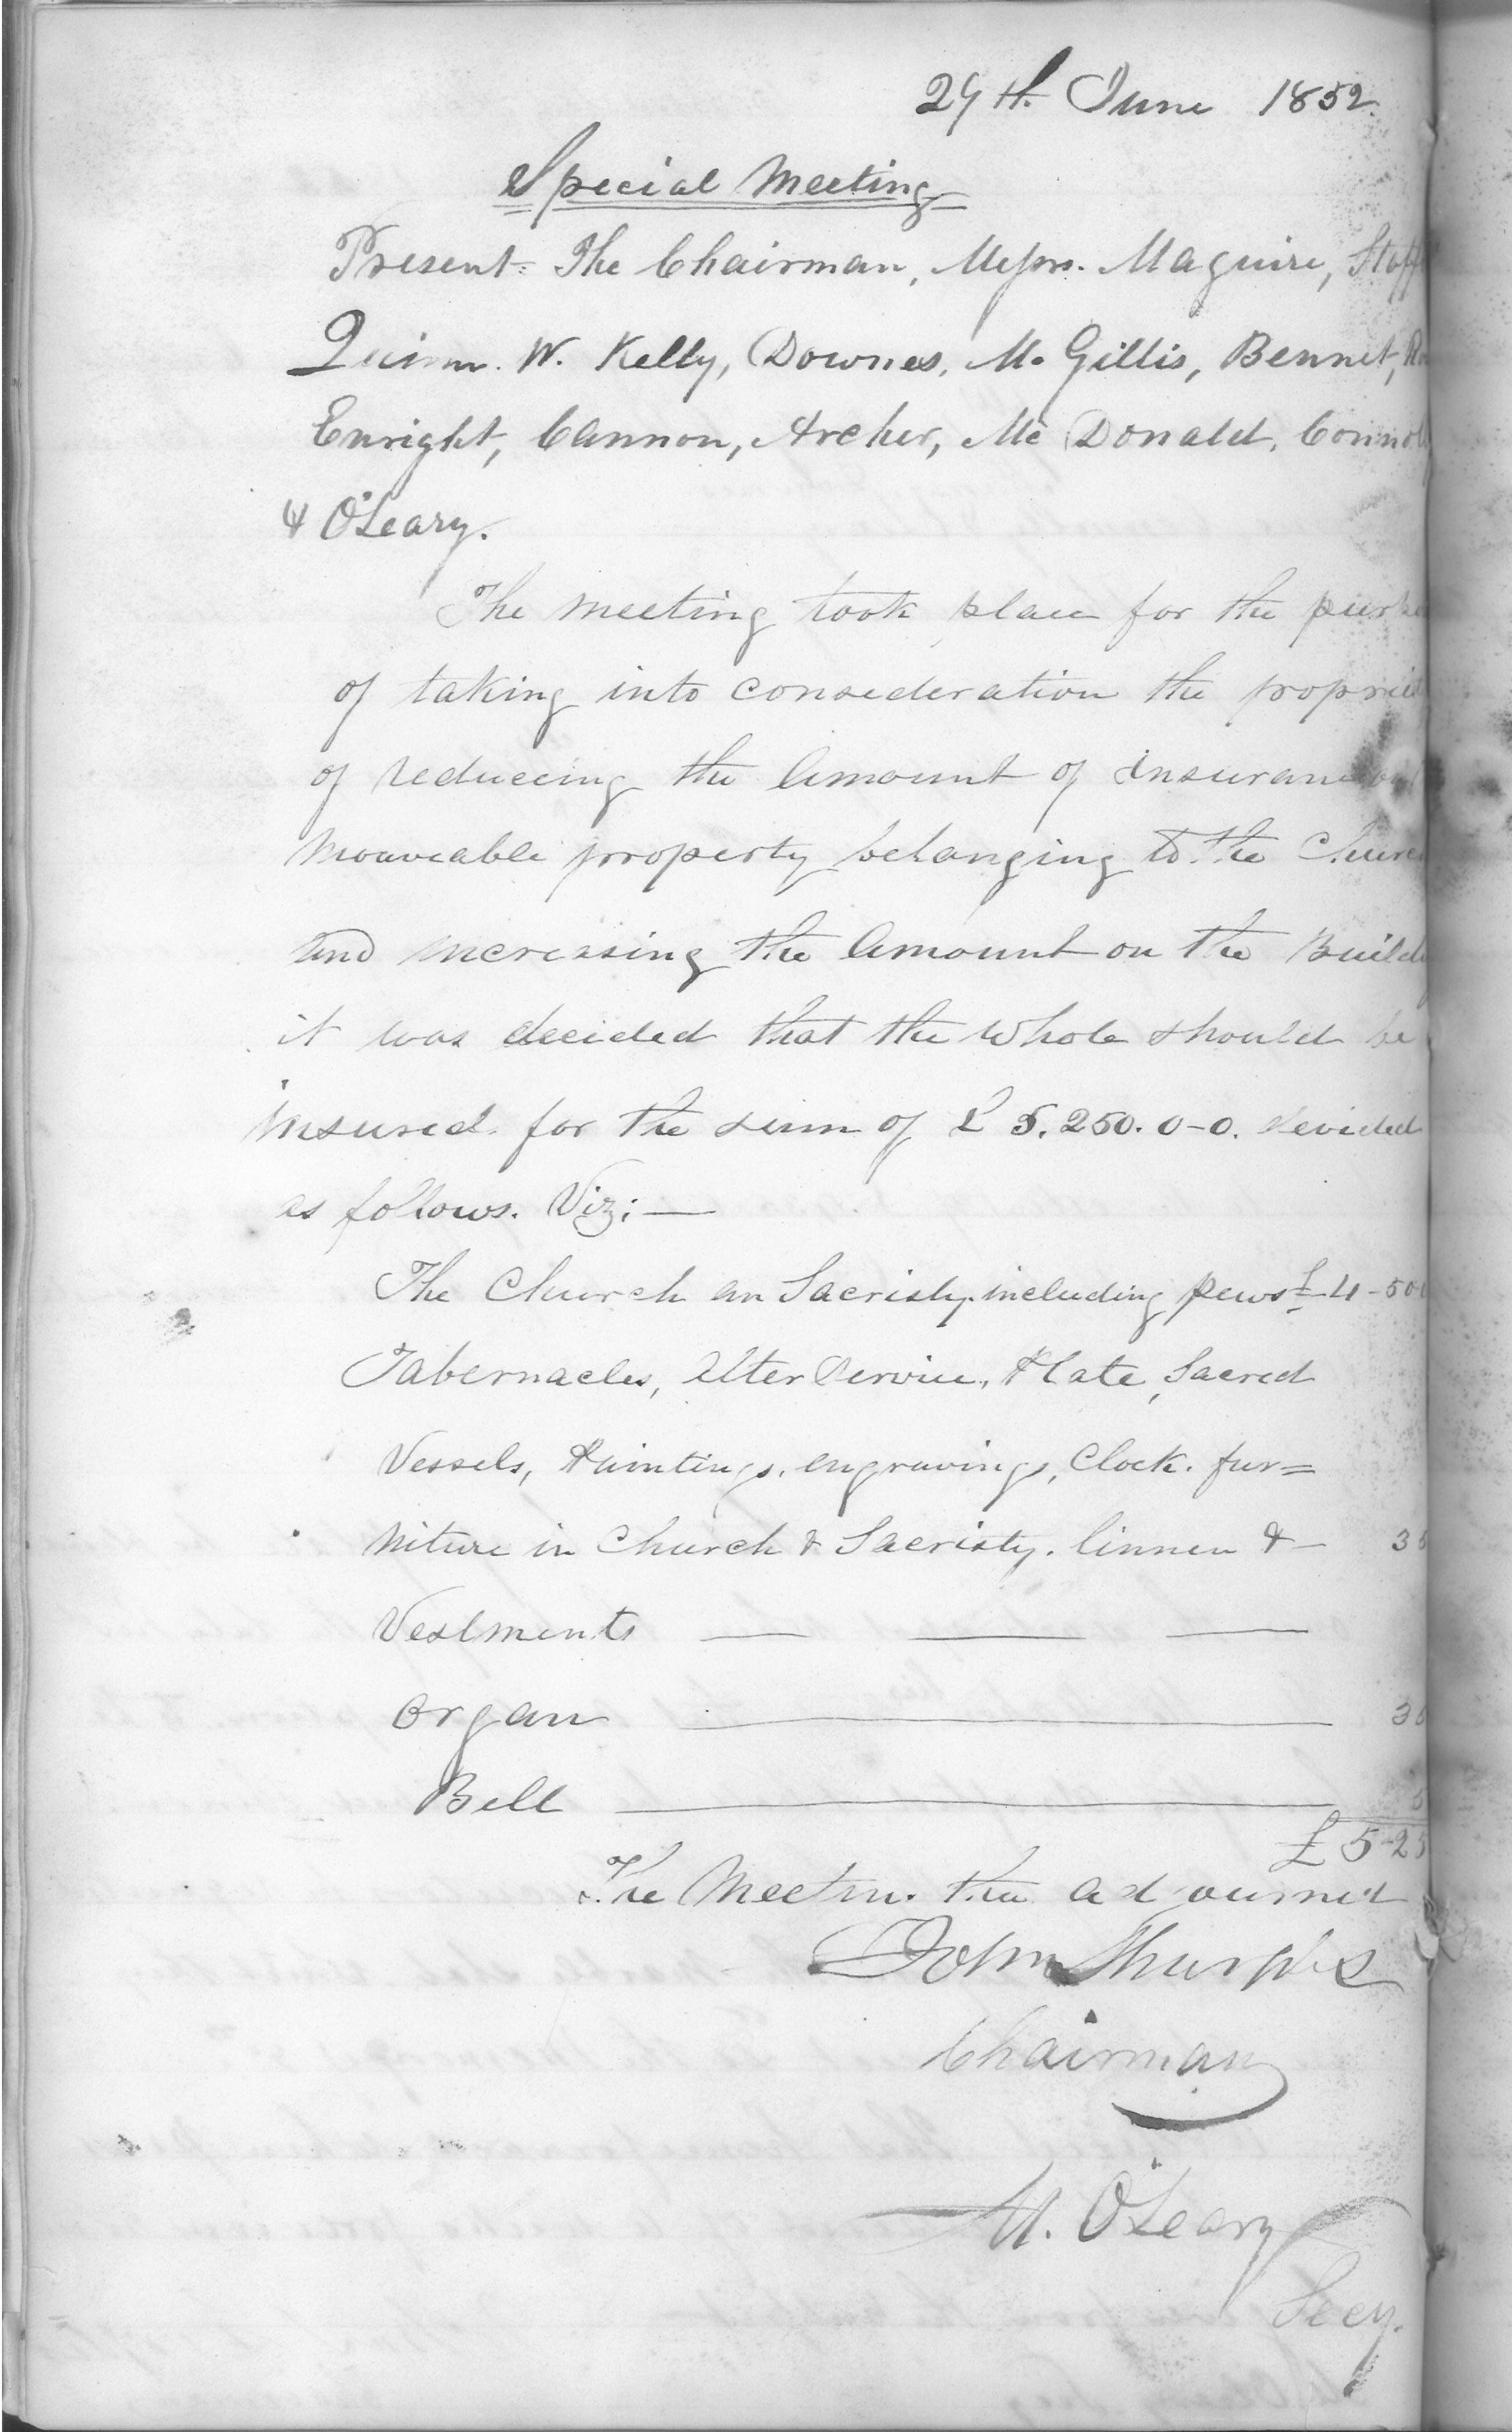 29th June 1852.
Special Meeting
Present: The Chairman, Messrs. Maguire, Staff
Quinn. W. Kelly, Downes, Mc Gillis, Bennet,
Enright, Cannon, Archer, Mc Donald, Connol
& O'Leary.
The meeting took place for the purpo
of taking into consideration the propriet
of reducing the Amount of insurance on
mouveable property belonging to the Church
and increasing the Amount on the Build
it was decided that the whole should be
insured for the sum of £ 5.250.0-0. devided
as follows. Viz:—
The Church an Sacristy including pews £4-500
Tabernacles, Alter Service, Plate, Sacred
Vessels, Paintings, engravings, Clock. fur=
niture in Church & Sacristy. linnen & — 35
Vestments — — —
Organ — 30
Bell —
£5-25
The Meetin. the adjourned
John Sharples
Chairman
M. O'Leary
Secy.